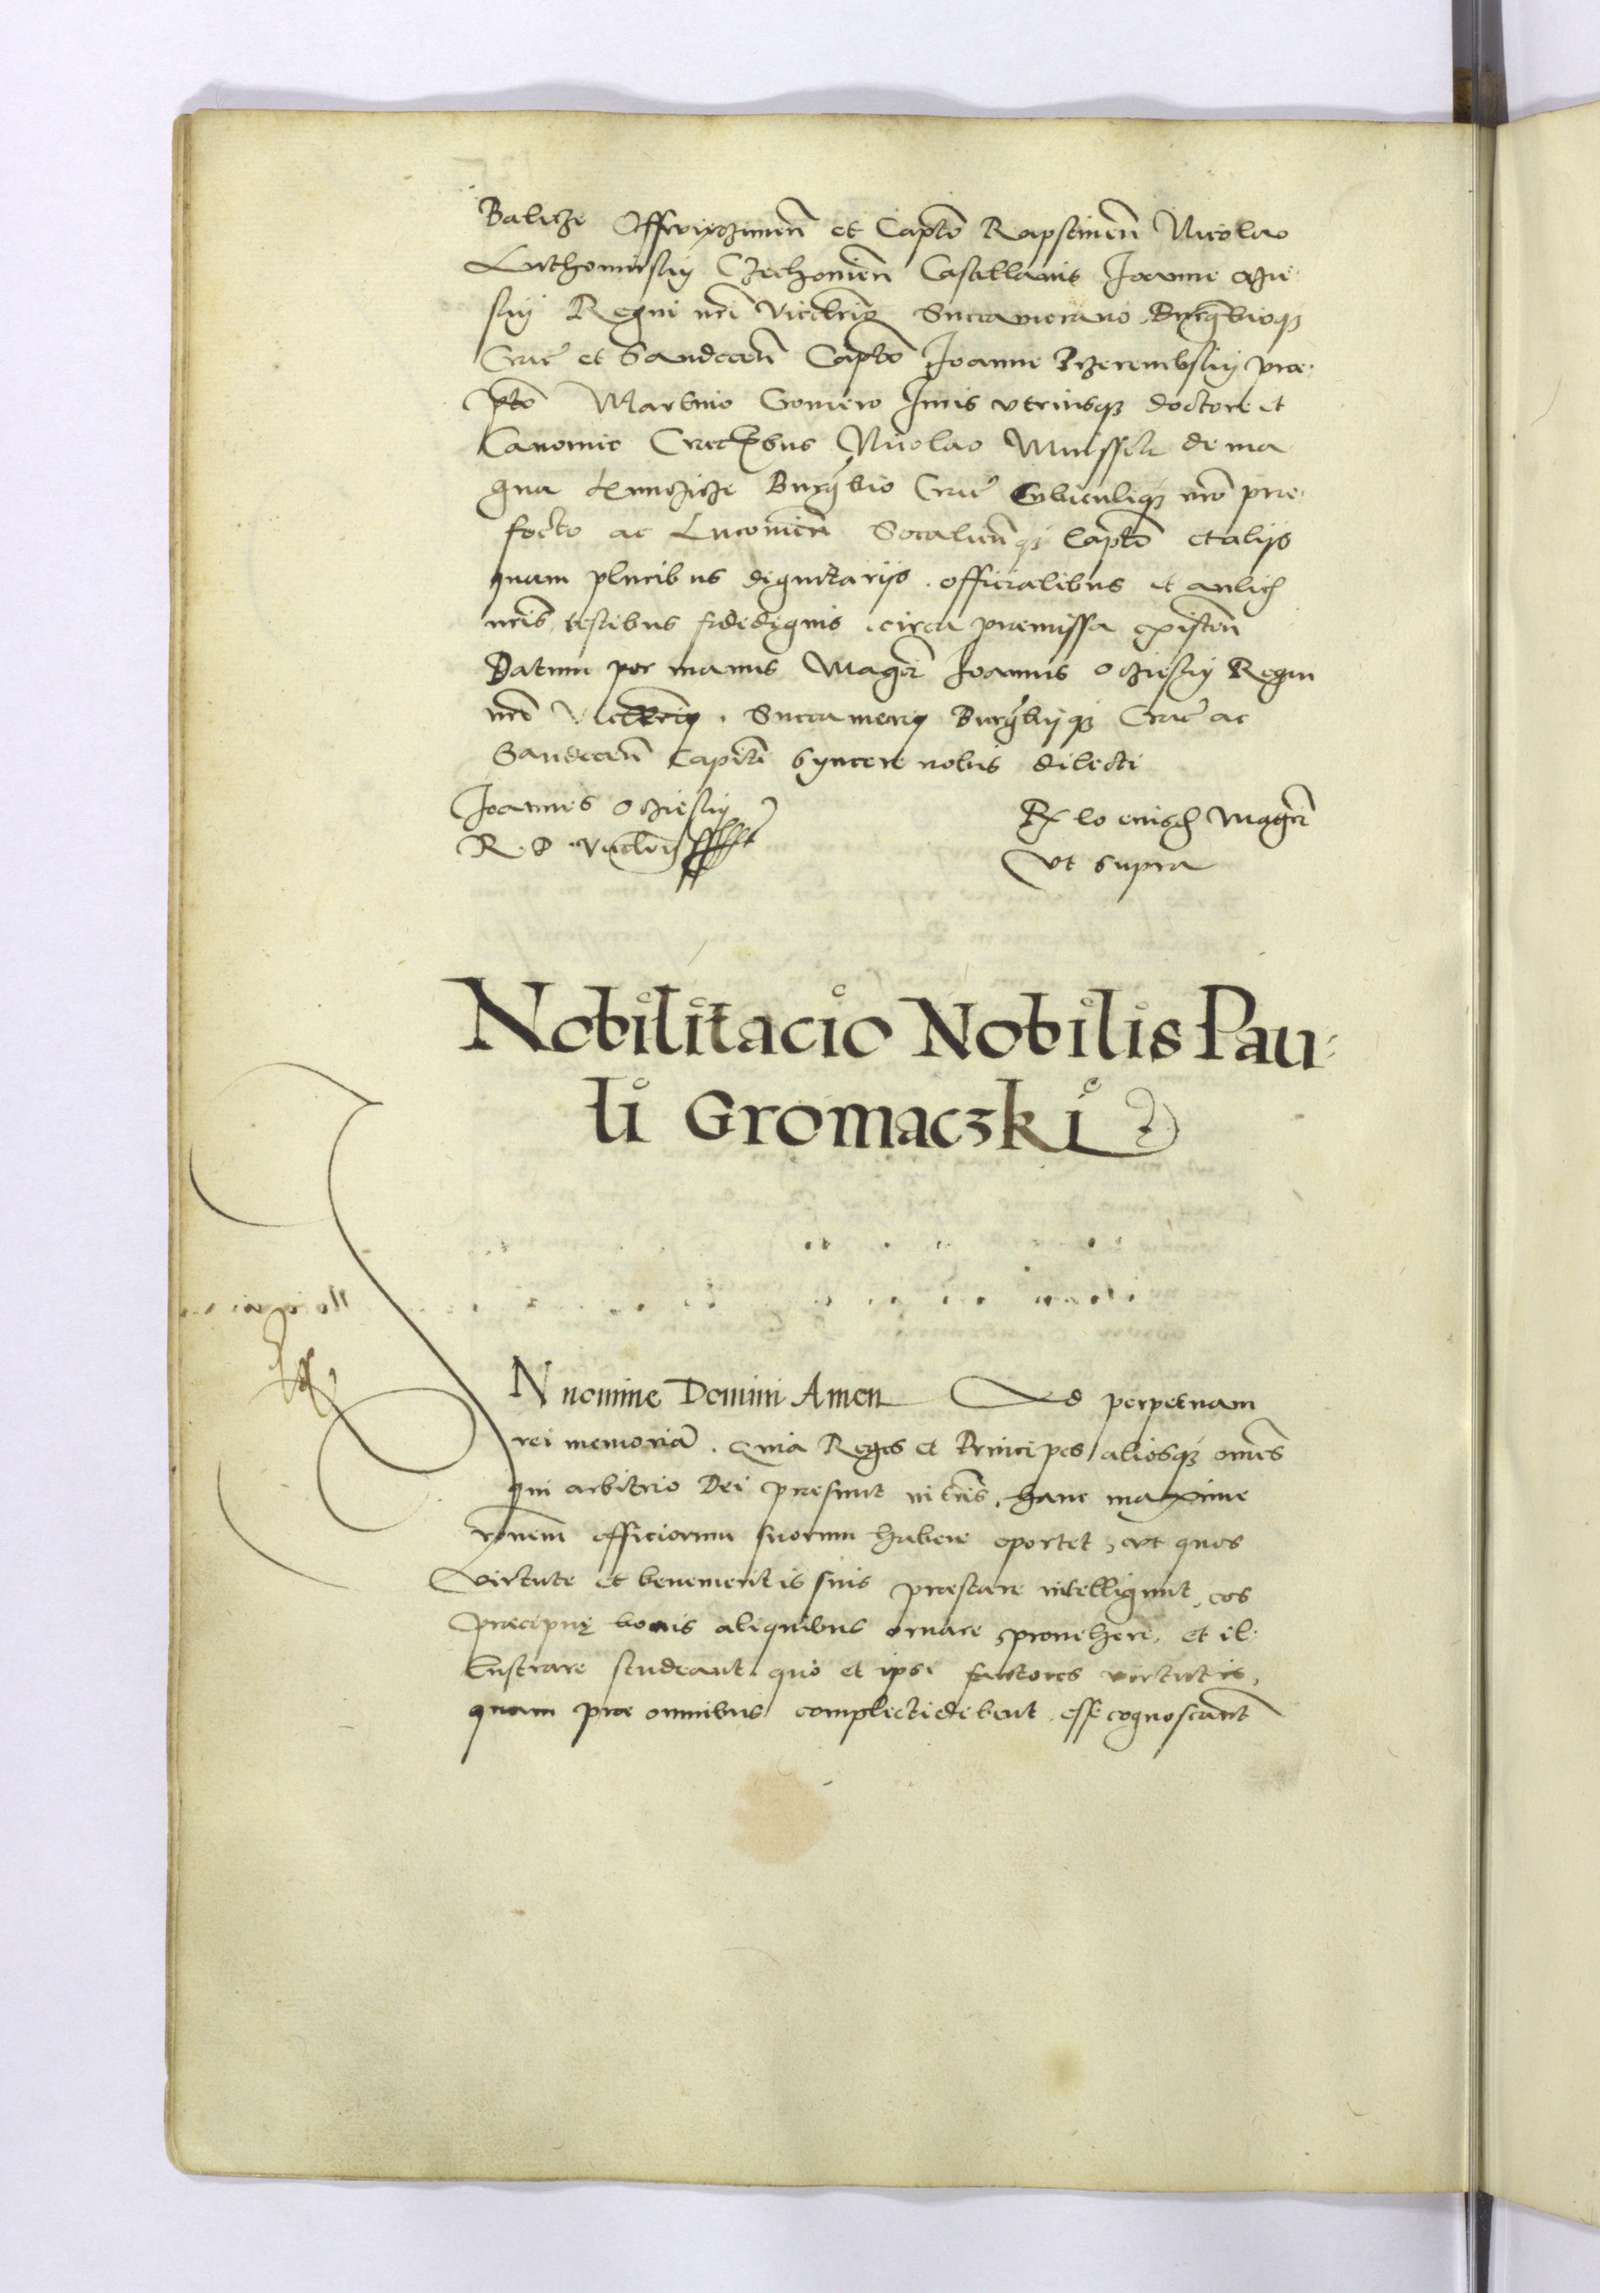 Balicze Osswyączimeñ et Captõ Rapsteineñ Nicolao
Luthomirsky Czechovieñ Castellanis Joanne Oczie
sky Regni nr̃i Vice Succamerario Burg̃bioq
Crac̃ et Sandeceñ Captõ Joanne Przerembsky præ
ptõ Martino Gomero Juris utriusq doctore et
Canonic Crac Nicolao Missk de ma
gna Burg̃bio Crac̃ Cubiculiq nrõ præ
fecto ac Lucovieñ Socalieñq Captõ et alijs
quam pluribus dignitarijs officialibus et aulicis
nr̃is testibus fidedignis circa præmissa existeñ
Datum per manus Magcĩ Joannis Ocziesky Regni
nr̃i Succamerarij Burg̃bijq Crac̃ ac
Sandeceñ Capitĩ syncere nobis dilecti
Joannes Ocziesky
R. P. Vice
Rlo eiusd Magcĩ
ut supra
Nobilitacio Nobilis Pau
li Gromaczki
IN nomine Domini Amen Ad perpetuam
rei memoriã. Quia Reges et Principes aliosq om̃es
qui arbitrio Dei præsunt in tr̃is, hanc maxime
rõnem officiorum suorum habere oportet, ut quos
virtute et benemeritis suis præstare intelligunt, eos
præcipuę bonis aliquibus ornare, provehere, et il
lustrare studeant quò et ipsi fautores virtutis,
quam præ omnibus complecti debent, esse cognoscant̃